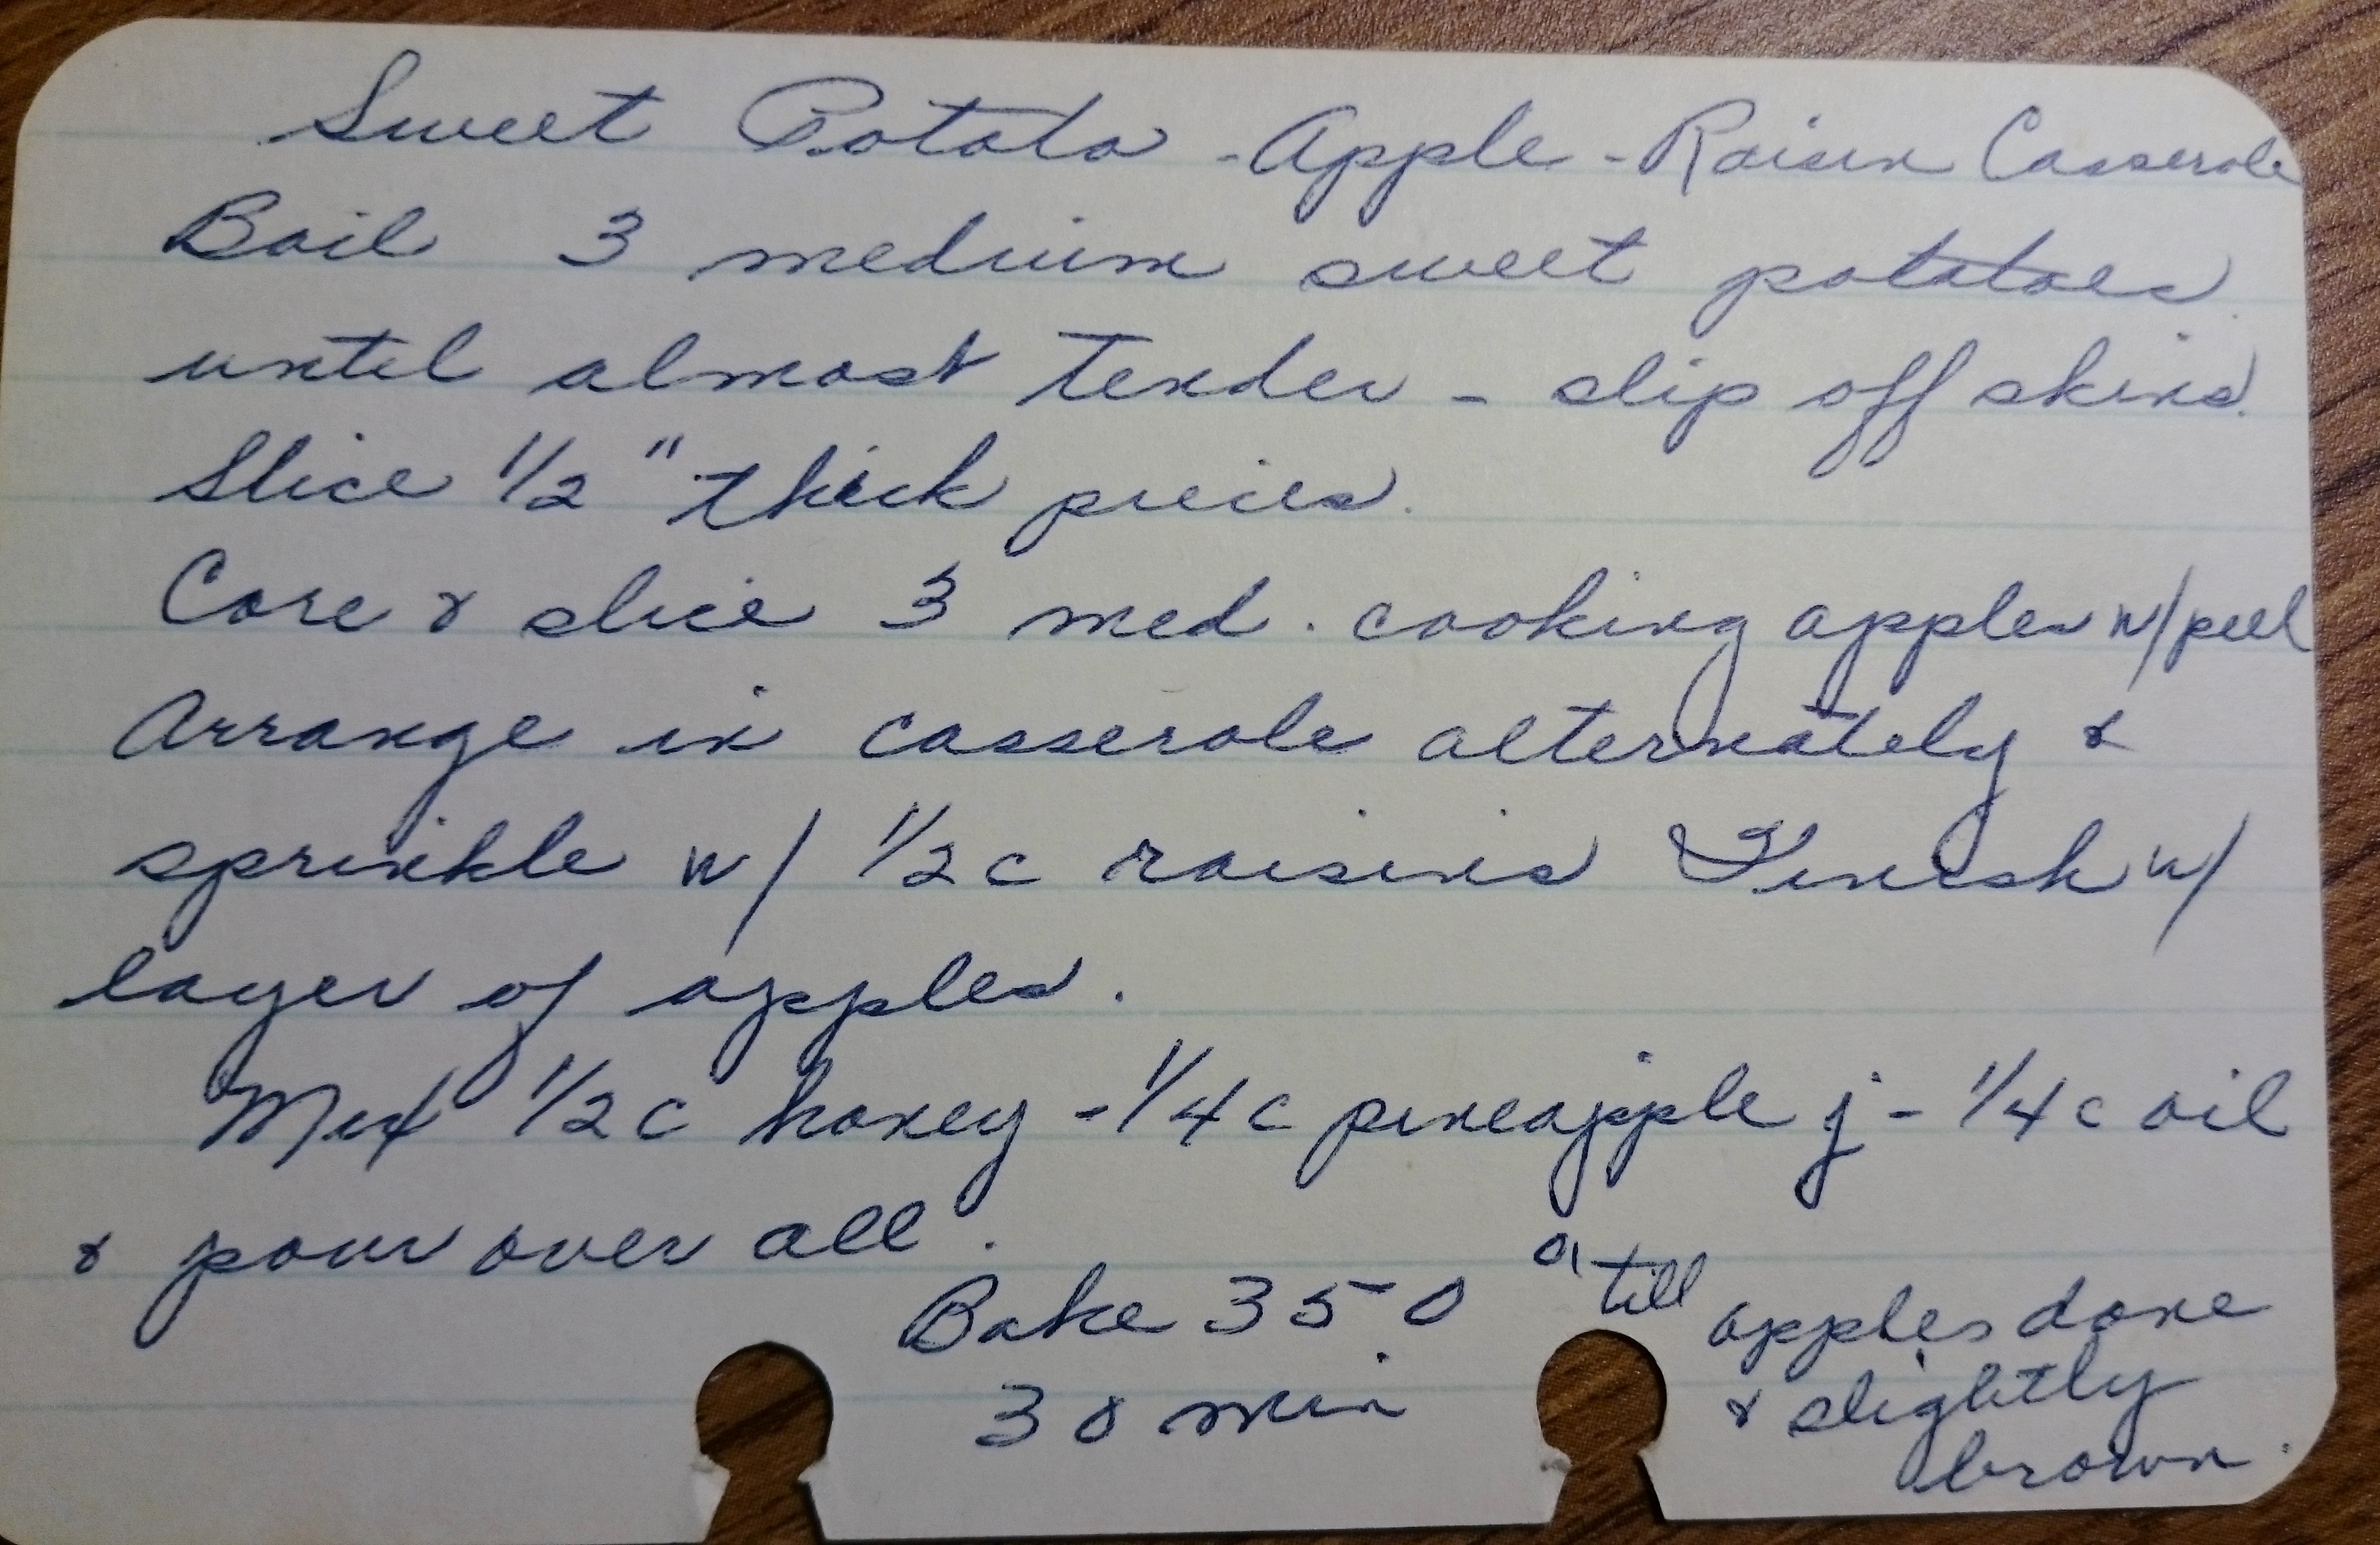 Sweet Potato - Apple - Raisin Casserole
Boil 3 medium sweet potatoes
until almost tender - slip off skins.
Slice 1/2" thick pieces.
Core & slice 3 med. cooking apples w/peel
Arrange in casserole alternately &
sprinkle w/ 1/2 c raisins Finish w/
layer of apples.
Mix 1/2 c honey - 1/4 c pineapple j - 1/4 c oil
& pour over all.
Bake 350 or till apples done
30 min & slightly
brown.